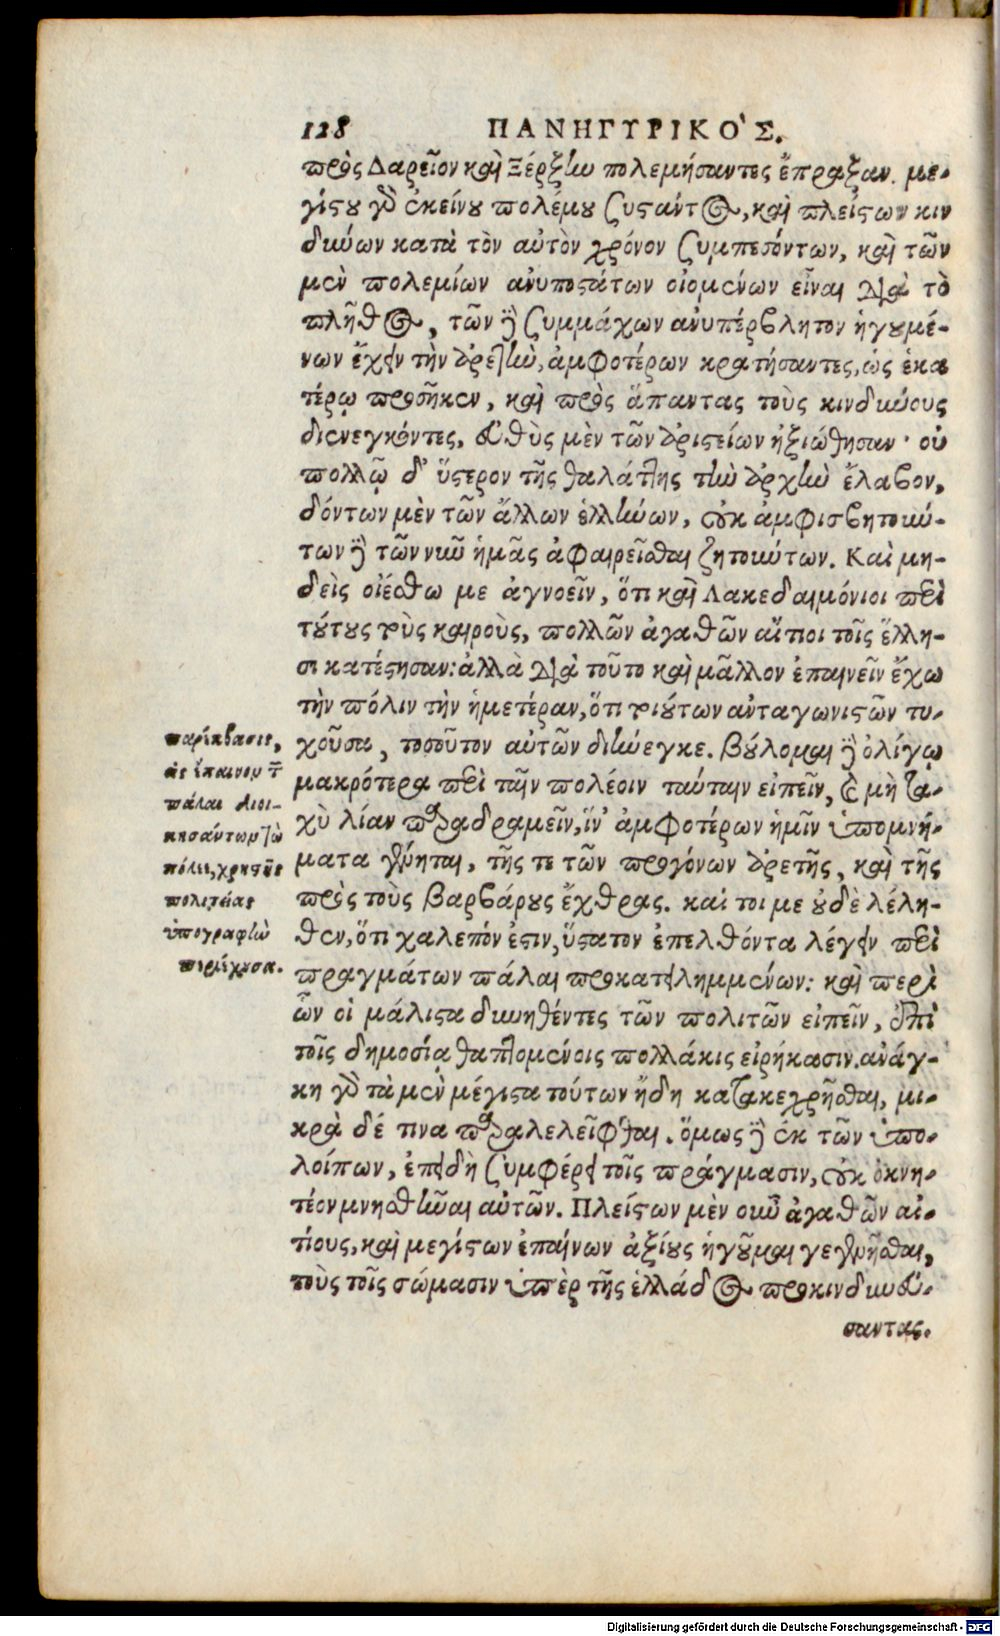 128 ΠΑΝΗΓΥΡΙΚΟ'Σ.
πρὸς Δαρεῖον καὶ Ξέρξην πολεμήσαντες ἔπραξαν. με-
γίστου γὰρ ἐκείνου πολέμου ζυστάντος, καὶ πλείστων κιν
δύνων κατὰ τὸν αὐτὸν χρόνον ζυμπεσόντων, καὶ τῶν
μὲν πολεμίων ἀνυποστάτων οἰομένων εἶναι διὰ τὸ
πλῆθος, τῶν δὲ ζυμμάχων ἀνυπέρβλητον ἡγουμέ-
νων ἔχειν τὴν ἀρετὴν, ἀμφοτέρων κρατήσαντες, ὡς ἑκα
τέρῳ προσῆκεν, καὶ πρὸς ἅπαντας τοὺς κινδύνους
διενεγκόντες, εὐθὺς μὲν τῶν ἀριστείων ἠξιώθησαν· οὐ
πολλῷ δ' ὕστερον τῆς θαλάττης τὴν ἀρχὴν ἔλαβον,
δόντων μὲν τῶν ἄλλων ἑλλήνων, οὐκ ἀμφισβητούν-
των δὲ τῶν νῦν ἡμᾶς ἀφαιρεῖσθαι ζητούντων. Καὶ μη-
δεὶς οἰέσθω με ἀγνοεῖν, ὅτι καὶ Λακεδαιμόνιοι περὶ
τούτους τοὺς καιροὺς, πολλῶν ἀγαθῶν αἴτιοι τοῖς ἕλλη-
σι κατέστησαν: ἀλλὰ διὰ τοῦτο καὶ μᾶλλον ἐπαινεῖν ἔχω
τὴν πόλιν τὴν ἡμετέραν, ὅτι τοιούτων ἀνταγωνιστῶν τυ-
χοῦσα, τοσοῦτον αὐτῶν διήνεγκε. βούλομαι δὲ ὀλίγῳ
μακρότερα περὶ ταῖν πολέοιν ταύταιν εἰπεῖν, καὶ μὴ τα-
χὺ λίαν παραδραμεῖν, ἵν' ἀμφοτέρων ἡμῖν ὑπομνή-
ματα γένηται, τῆς τε τῶν προγόνων ἀρετῆς, καὶ τῆς
πρὸς τοὺς βαρβάρους ἔχθρας. καί τοι με οὐδὲ λέλη-
θεν, ὅτι χαλεπόν ἐστιν, ὕστατον ἐπελθόντα λέγειν περὶ
πραγμάτων πάλαι προκατειλημμένων: καὶ περὶ
ὧν οἱ μάλιστα δυνηθέντες τῶν πολιτῶν εἰπεῖν, ἐπὶ
τοῖς δημοσίᾳ θαπτομένοις πολλάκις εἰρήκασιν. ἀνάγ-
κη γὰρ τὰ μὲν μέγιστα τούτων ἤδη κατακεχρῆσθαι, μι-
κρὰ δέ τινα παραλελεῖφθαι. ὅμως δὲ ἐκ τῶν ὑπο-
λοίπων, ἐπειδὴ ζυμφέρει τοῖς πράγμασιν, οὐκ ὀκνη-
τέον μνησθῆναι αὐτῶν. Πλείστων μὲν οὖν ἀγαθῶν αἰ-
τίους, καὶ μεγίστων ἐπαίνων ἀξίους ἡγοῦμαι γεγενῆσθαι,
τοὺς τοῖς σώμασιν ὑπὲρ τῆς ἑλλάδος προκινδυνεύ-
σαντας.
παρέκβασις,
εἰς ἔπαινον τ
πάλαι διοι-
κησάντων τὴν
πόλιν, χρηστῆς
πολιτείας
ὑπογραφὴν
περιέχουσα.
Digitalisierung gefördert durch die Deutsche Forschungsgemeinschaft - DFG